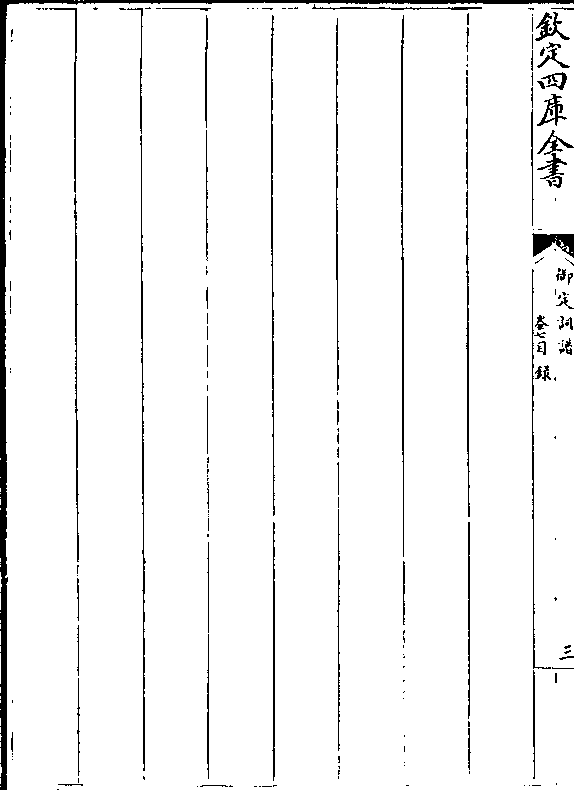 欽定四庫全書
御定詞譜
卷七目錄
三